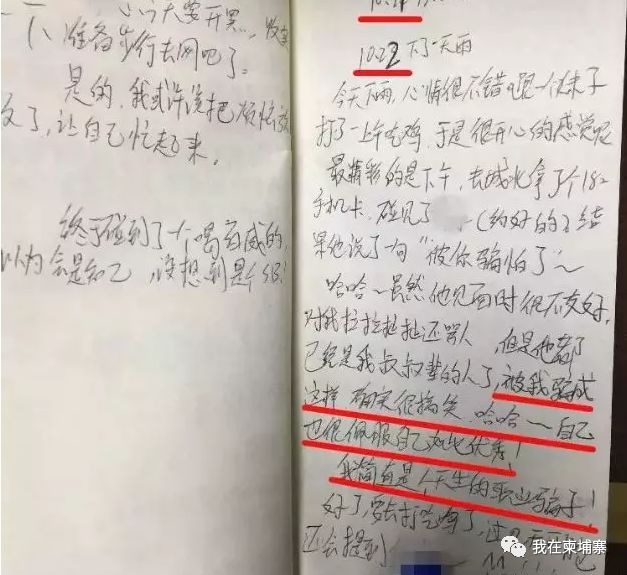 准备步行去网吧了。
是的,我或许该把烦恼
了,让自己忙起来。
终于碰到了一个喝
以为会是知己,没想到是个
10.22 下了一天雨
今天下雨,心情很不错,跟一个妹子
打了一上午吃鸡,于是很开心的感觉呢
最精彩的是下午,去城北拿了个182
手机卡,碰见了 (约好的)结
果他说了一句“被你骗怕了”~
哈哈~虽然他见面时很不友好,
对我拉拉扯扯还骂人,但是他都
已经是我叔叔辈的人了,被我骗成
这样 确实很搞笑,哈哈~自己
也很佩服自己如此优秀!
我简直是个天生的职业骗子!
好了,要去打吃鸡了,
还会提到
我在柬埔寨